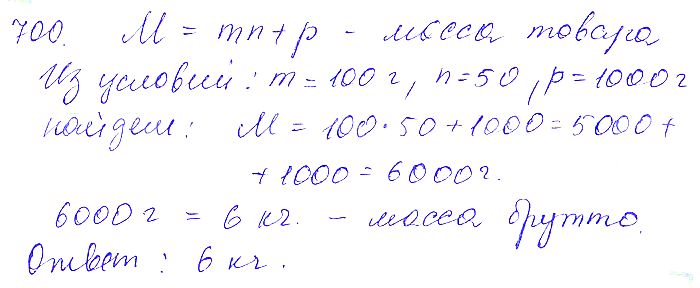 700. M = mn + p - масса товара
Из условий: m = 100 г, n = 50, p = 1000 г
найдем: M = 100 · 50 + 1000 = 5000 +
+ 1000 = 6000 г.
6000 г = 6 кг. - масса брутто.
Ответ: 6 кг.